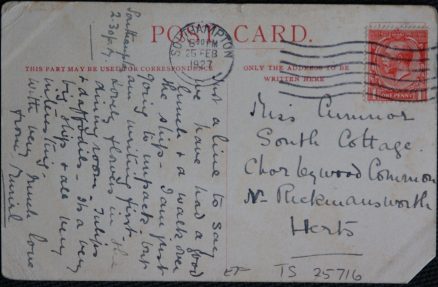 POST CARD.
THIS PART MAY BE USED FOR CORRESPONDENCE
ONLY THE ADDRESS TO BE
WRITTEN HERE
SOUTHAMPTON
PM
25 FEB
1927
ONE PENNY
Southampton
2.30
Just a line to say
we have had a good
lunch & a walk over
the ship - I am just
going to unpack - but
am writing first
lovely flowers in the
dining room - Tulips
& daffodils - It's a very
big ship & all very
interesting.
with very much love
from Muriel
Miss Cumnor
South Cottage
Chorleywood Common
Nr. Rickmansworth
Herts
TS 25716